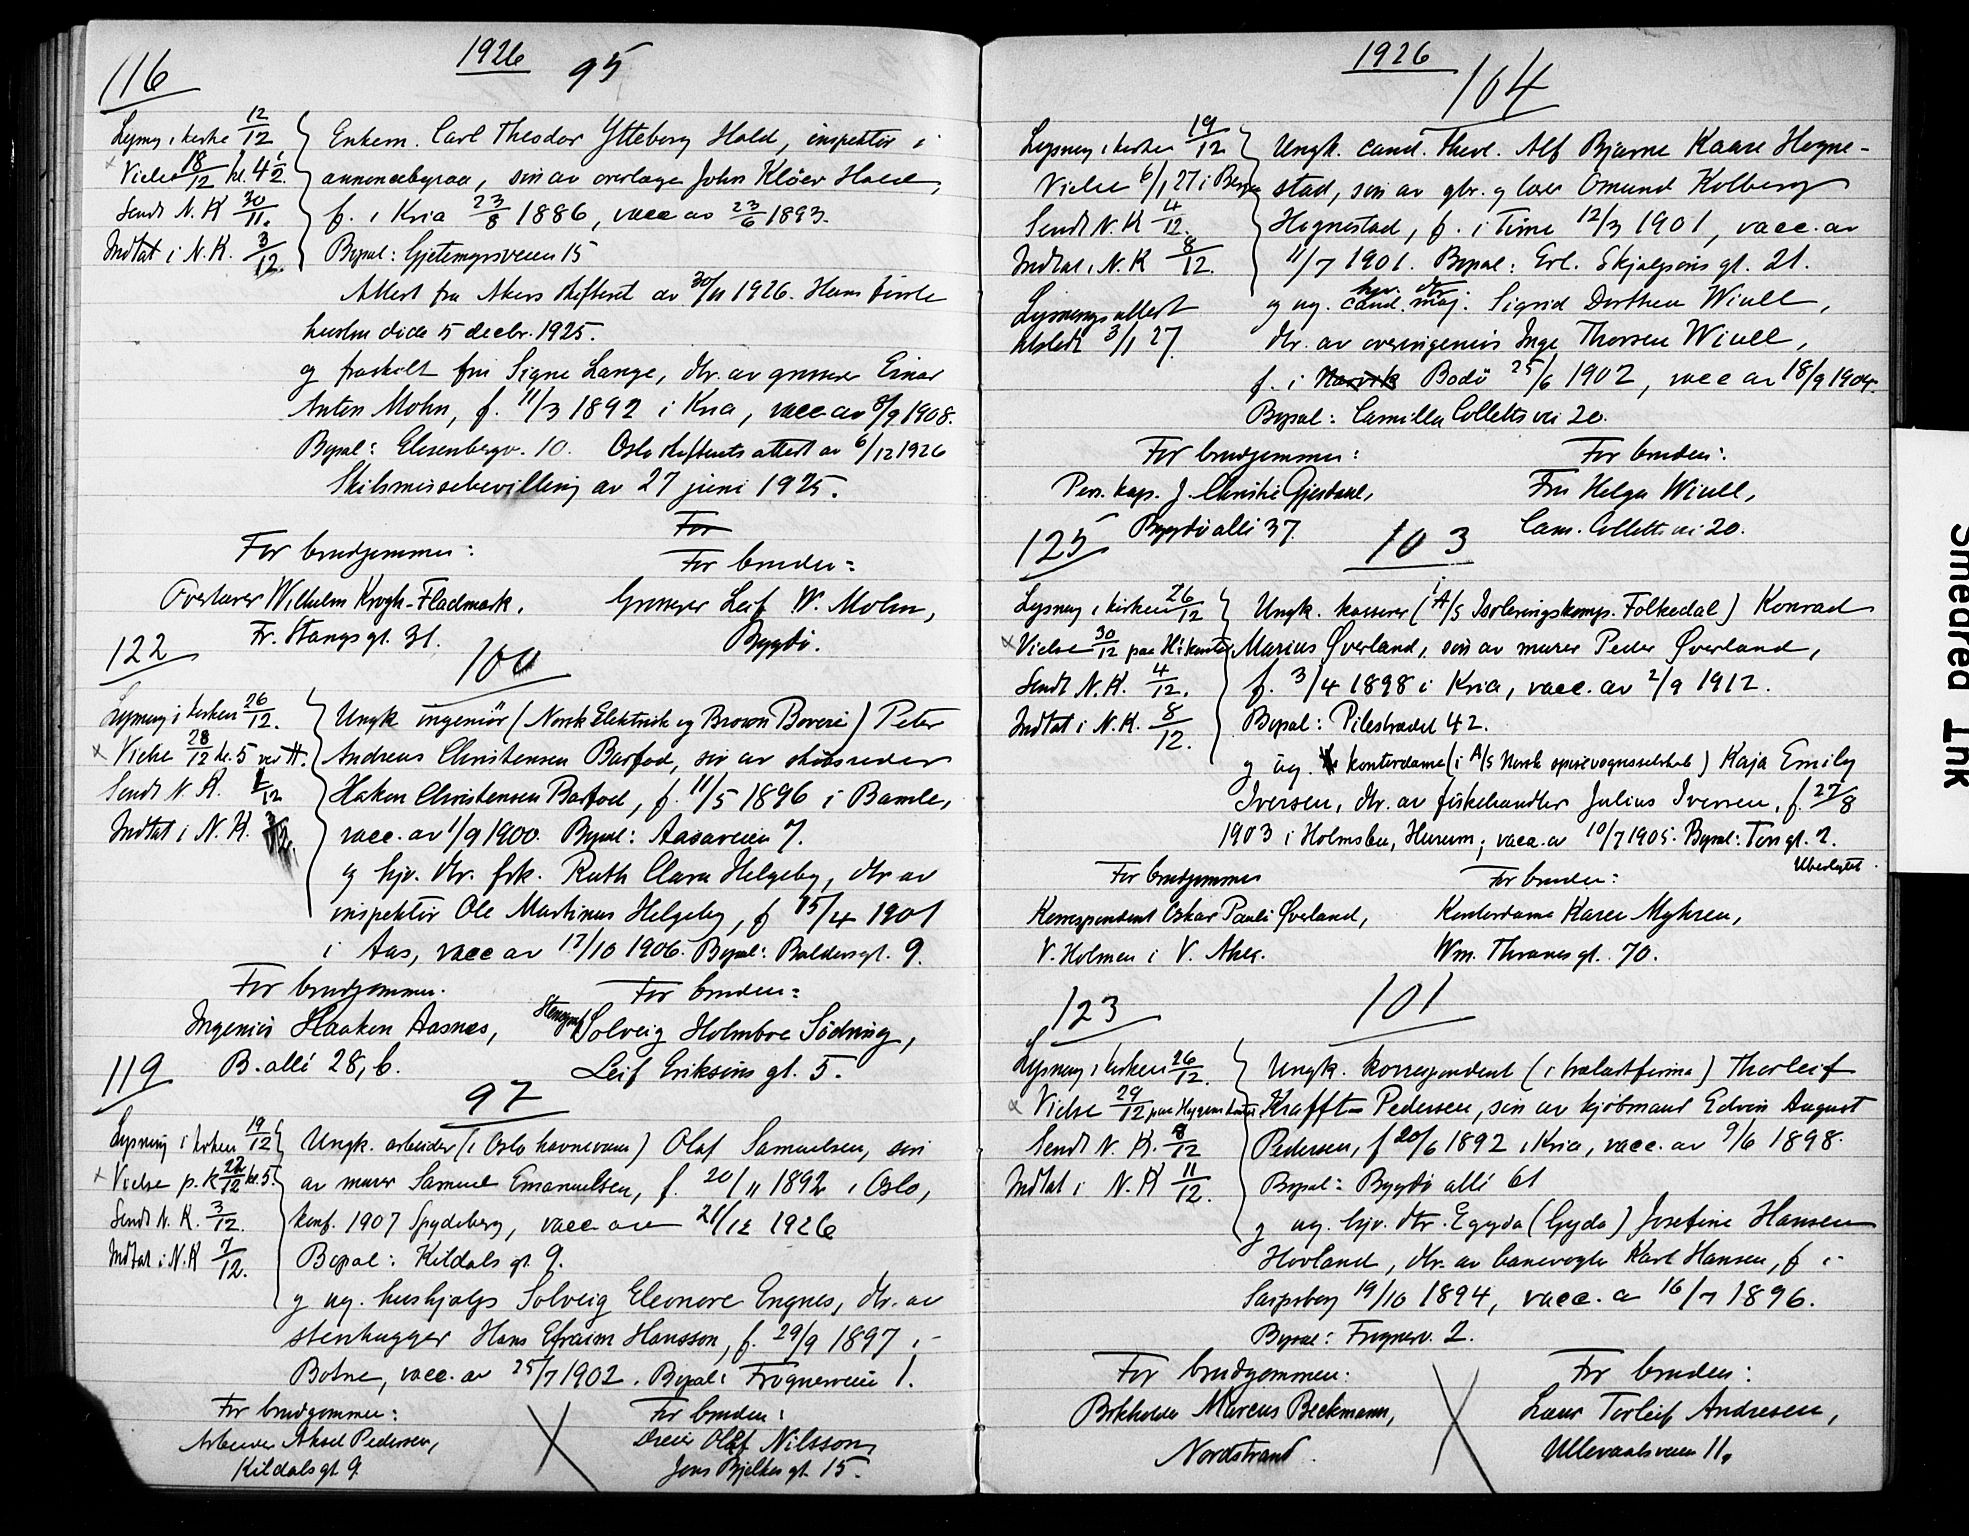 1926
95
116
Lysning i kirke 12/12
Vielse 18/12 kl. 4 1/2
Sendt N. K. 30/11.
Indtat i N. K. 3/12.
Enkem. Carl Theodor Ytteborg Hald, inspektør i
annoncebyraa, søn av overlæge John Kløer Hald,
f. i Kria 23/8 1886, vacc av 23/6 1893.
Bopæl: Gjetemyrsveien 15
Attest fra Akers skifteret av 30/11 1926. Hans første
hustru døde 5 decbr. 1925.
og fraskilt fru Signe Lange, dtr. av grosserer Einar
Anton Mohn, f. 11/3 1892 i Kria, vacc av 8/9 1908.
Bopæl: Elisenbergv. 10. Oslo skifterets attest av 6/12 1926
Skilsmissebevilling av 27 juni 1925.
For
For brudgommen:
For bruden:
Overlærer Wilhelm Krogh-Fladmark,
Fr. Stangs gt. 31.
Grosserer Leif W. Mohn,
Bygdø.
122
100
Lysning i kirken 26/12.
Vielse 28/12 kl. 5 ved H.
Sendt N. K. 1/12
Indtat i N. K.
Ungk ingeniør (Norsk Elektrisk og Brown Boveri) Peter
Andreas Christensen Barfod, søn av skibsreder
Haken Christensen Barfod, f. 11/5 1896 i Bamle,
vacc. av 1/9 1900. Bopæl: Aasaveien 7.
og hjv. dtr. frk. Ruth Clara Helgeby, dtr av
inspektør Ole Martinus Helgeby, f 15/4 1901
i Aas, vacc av 17/10 1906. Bopæl: Baldersgt. 9.
For brudgommen.
For bruden:
Ingeniør Haakon Aasnes,
B. allé 28, b.
Solveig Holmboe Södring,
Leif Eriksøns gt. 5.
119
97
Lysning i kirken 19/12
Vielse p. K 22/12 kl. 5.
Sendt N. K. 3/12.
Indtat i N. K 7/12.
Ungk. arbeider (i Oslo havnevæsen) Olaf Samuelsen, søn
av murer Samuel Emanuelsen, f. 20/11 1892 i Oslo,
konf. 1907 Spydeberg, vacc. av 21/12 1926
Bopæl: Kildals gt. 9.
og ug. hushjælp Solveig Eleonore Engnes, dtr. av
stenhugger Hans Efraim Hansson, f. 29/9 1897 i
Botne, vacc. av 25/7 1902. Bopæl: Frognerveien 1.
For brudgommen:
For bruden:
Arbeider Aksel Pedersen,
Kildalsgt 9
Dreier Olaf Nilsson,
Jens Bjelkes gt. 15.
1926
104
Lysning i kirken 19/12
Vielse 6/1 27 i Bergen
Sendt N. K 4/12.
Indtat i N. K 8/12.
Lysningsattest
utstedt 3/1 27.
Ungk. cand. theol. Alf Bjarne Kaare Hogne-
stad, søn av gbr. og lærer Omund Kolberg
Hognestad, f. i Time 12/3 1901, vacc. av
11/7 1901. Bopæl: Erl. Skjalgsøns gt. 21.
hjv. dtr
og ug. cand. mag. Sigrid Dorthea Wiull,
dtr. av overingeniør Inge Thorsen Wiull,
f. i Narvik Bodø 25/6 1902, vacc av 18/9 1904.
Bopæl: Camilla Colletts vei 20.
For brudgommen:
For bruden:
Pers. kap. J. Christie Gjerdahl,
Bygdø allé 37.
Fru Helga Wiull,
Cam. Colletts vei 20.
125
103
Lysning i kirken 26/12
Vielse 30/12 paa H.s kontor
Sendt N. K. 4/12.
Indtat i N. K. 8/12.
Ungk. kasserer (i A/S Isoleringskomp. Folkedal) Konrad
Marius Øverland, søn av murer Peder Øverland,
f. 3/4 1898 i Kria, vacc. av 2/9 1912.
Bopæl: Pilestrædet 42.
og ug. kontordame (i A/S Norsk spisevognsselskab) Kaja Emily
Iversen, dtr. av fiskehandler Julius Iversen, f. 27/8
1903 i Holmsbu, Hurum, vacc. av 10/7 1905. Bopæl: Torvgt. 2.
Ubeslegtet
For brudgommen
For bruden:
Korrespondent Oskar Pauli Øverland,
V. Holmen i V. Aker.
Kontordame Karen Myhren,
Wm. Thranes gt. 70.
123
101
Lysning i kirken 26/12.
Vielse 29/12 paa Hygens kontor
Sendt N. K. 8/12
Indtat i N. K 11/12.
Ungk. korrespondent (i trælastfirma) Thorleif
Krafft Pedersen, søn av kjøbmand Edvin August
Pedersen, f 20/6 1892 i Kria, vacc. av 9/6 1898.
Bopæl: Bygdø allé 61
og ug. hjv. dtr. Egyda (Gyda) Josefine Hansen
Hovland, dtr. av banevogter Karl Hansen, f i
Sarpsborg 19/10 1894, vacc. a 16/7 1896.
Bopæl: Frognerv. 2.
For brudgommen:
For bruden:
Bokholder Marcus Beckmann,
Nordstrand.
Lærer Torleif Andresen,
Ullevaalsveien 11.
Smeared Ink